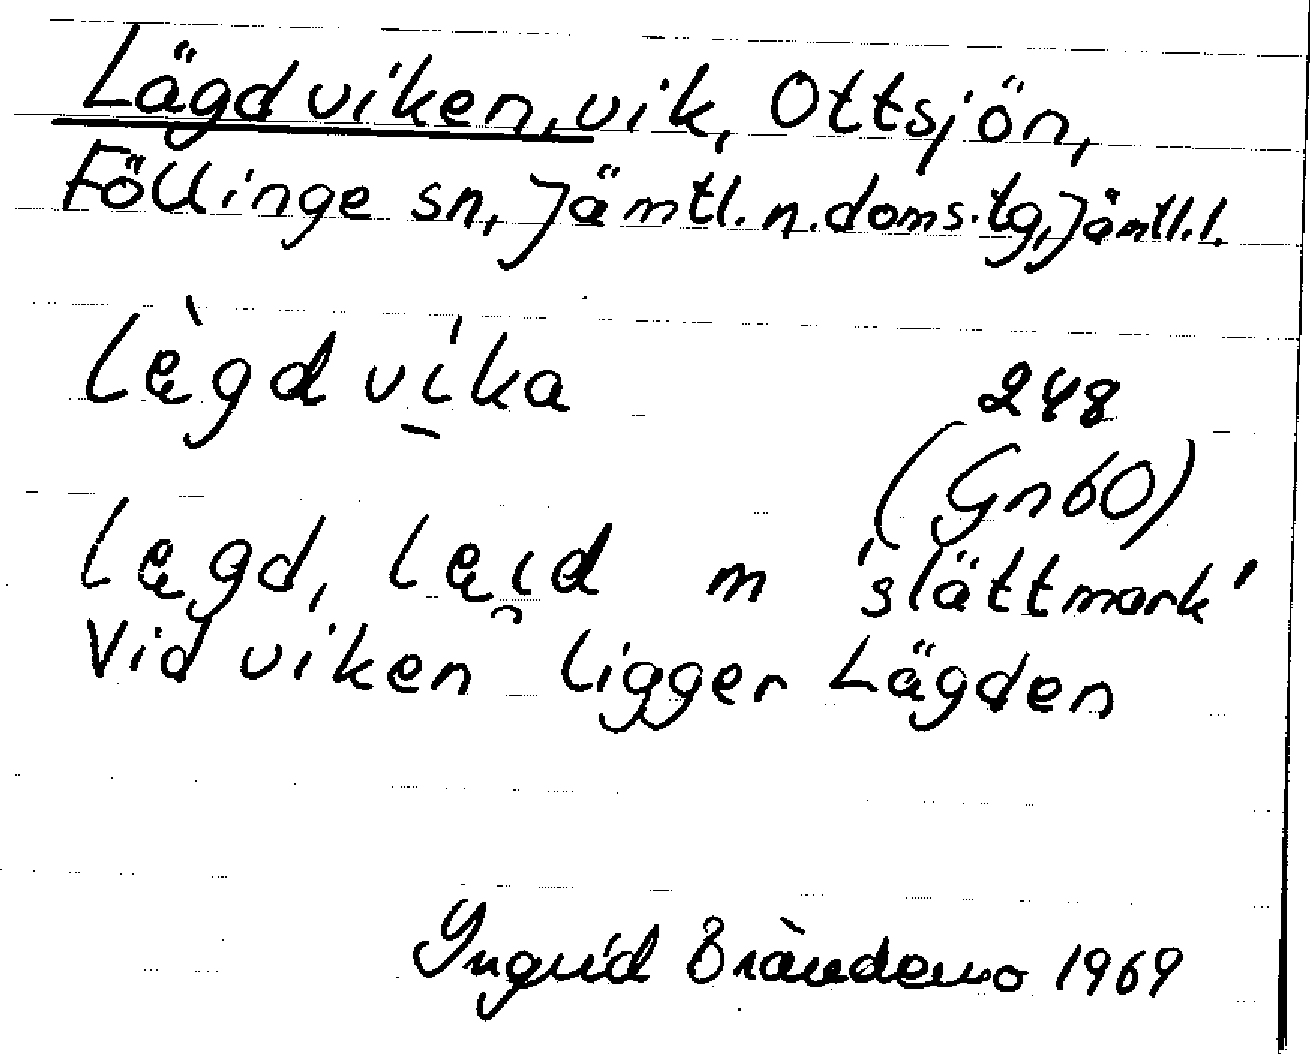 Lägdviken, vik, Ottsjön,
Föllinge sn, Jämtl. n. doms. tg, Jämtl. l.
lę̀gdvi̱ka
248
(Gn60)
lęgd, lęi̯d m 'slättmark'
Vid viken ligger Lägden
Ingrid Brändemo 1969